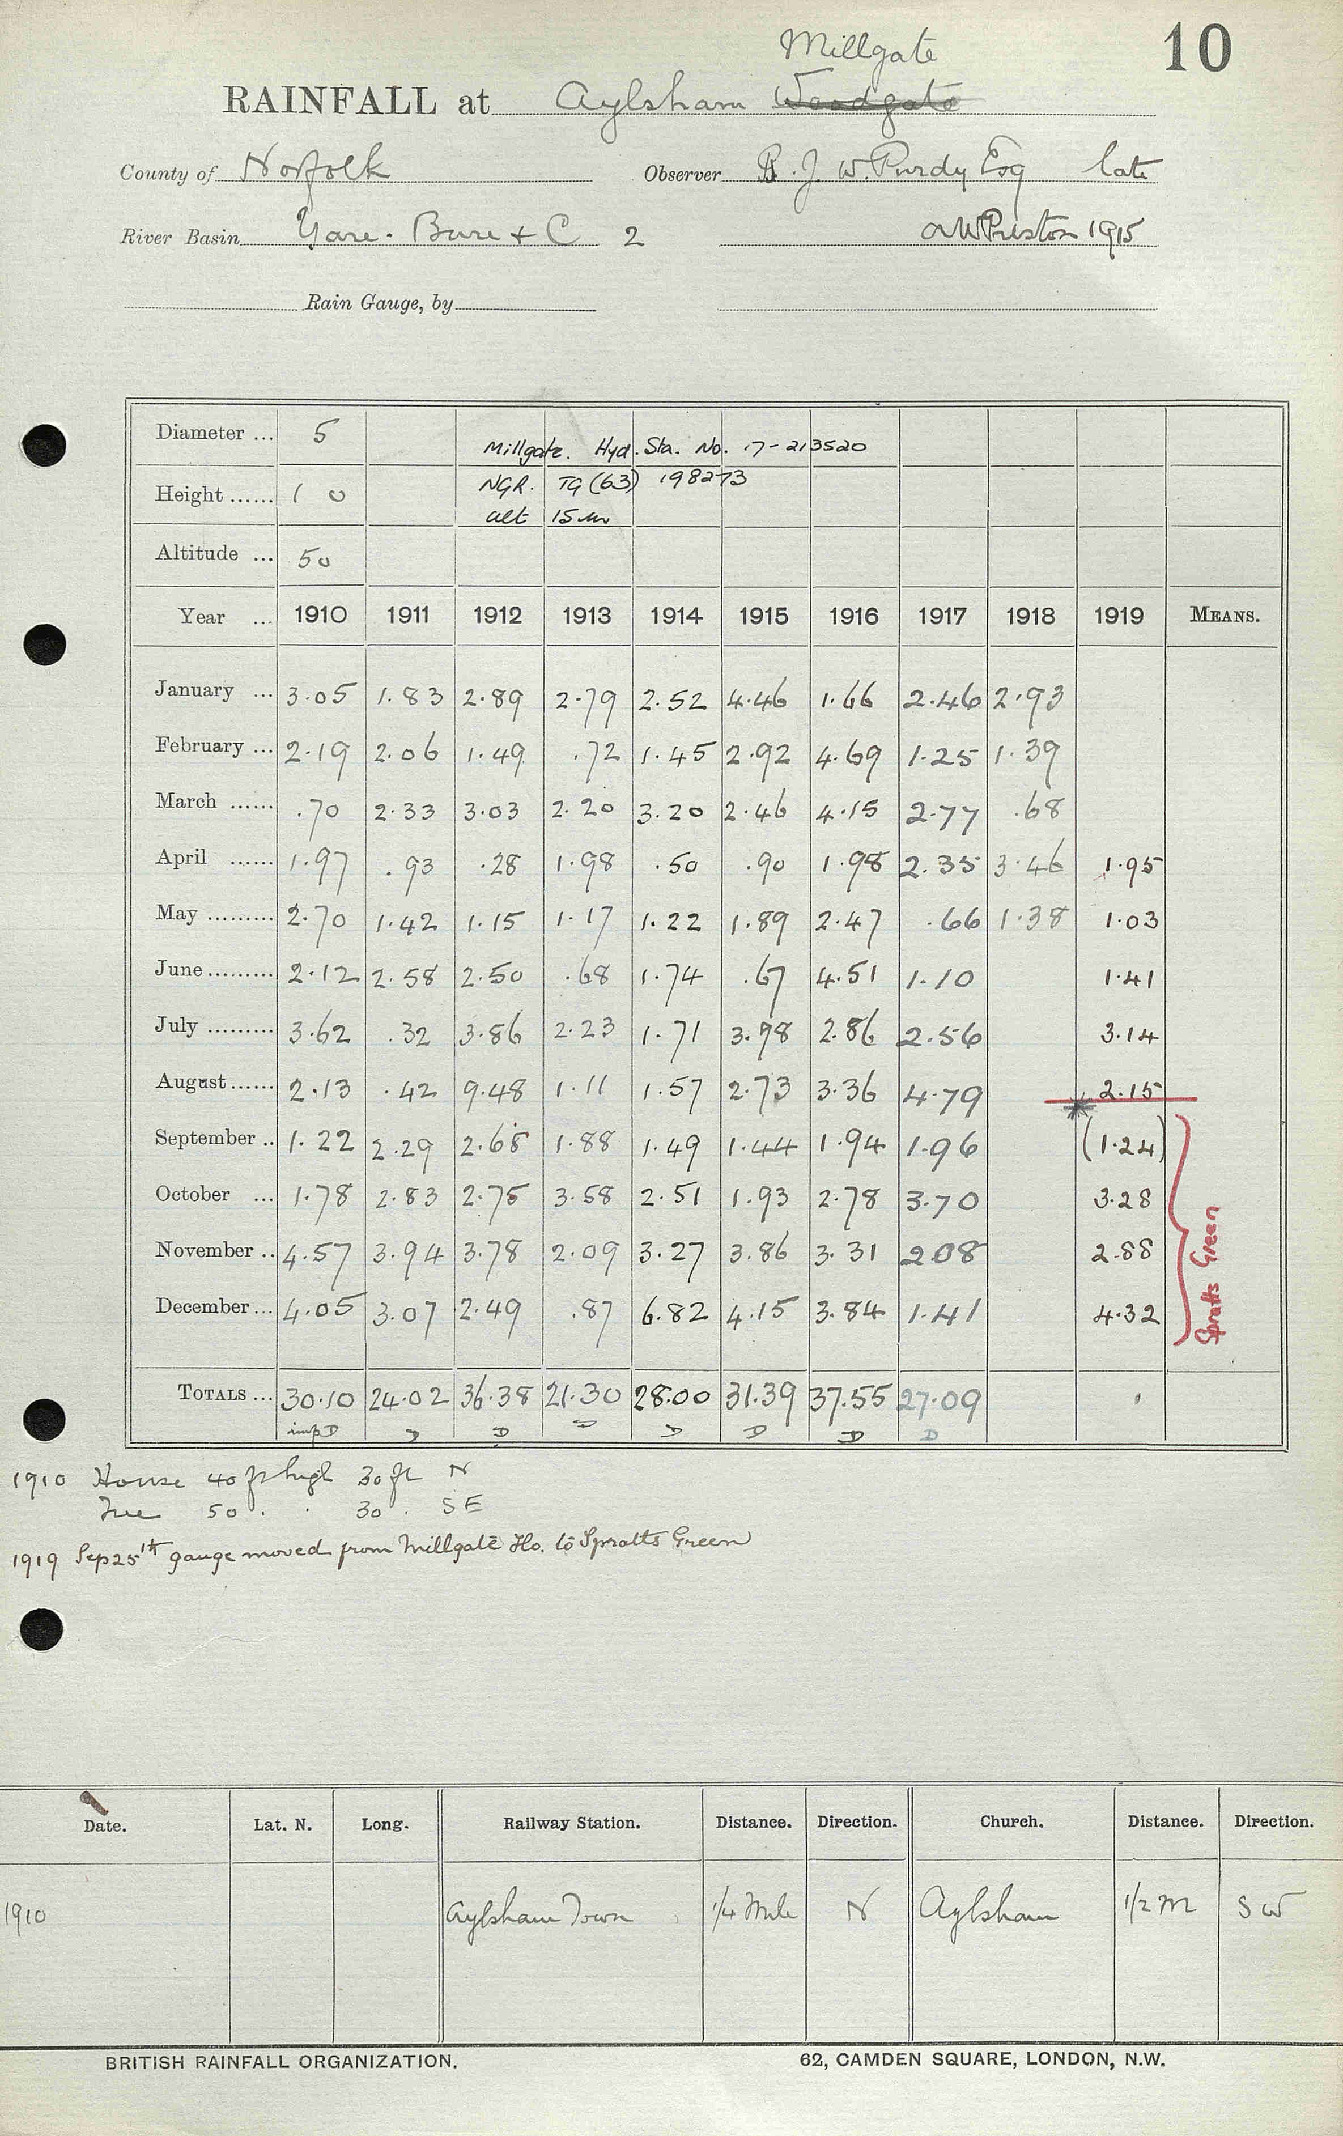 10
Millgate
RAINFALL at Aylsham Woodgate
County of Norfolk Observer B. J. W. Purdy Esq late
River Basin Yare. Bure + C 2 A W Preston 1915
Rain Gauge, by
Diameter ... 5
Millgate. Hyd. Sta. No. 17-213520
Height ...... 1 0 NGR. TG (63) 198273
alt 15 m
Altitude ... 50
Year ... 1910 1911 1912 1913 1914 1915 1916 1917 1918 1919 MEANS.
January ... 3.05 1.83 2.89 2.79 2.52 4.46 1.66 2.46 2.93
February ... 2.19 2.06 1.49 .72 1.45 2.92 4.69 1.25 1.39
March ...... .70 2.33 3.03 2.20 3.20 2.46 4.15 2.77 .68
April ...... 1.97 .93 .28 1.98 .50 .90 1.98 2.35 3.46 1.95
May ......... 2.70 1.42 1.15 1.17 1.22 1.89 2.47 .66 1.38 1.03
June ......... 2.12 2.58 2.50 .68 1.74 .67 4.51 1.10 1.41
July ......... 3.62 .32 3.86 2.23 1.71 3.98 2.86 2.56 3.14
August ...... 2.13 .42 9.48 1.11 1.57 2.73 3.36 4.79 2.15
September .. 1.22 2.29 2.68 1.88 1.49 1.44 1.94 1.96 * (1.24)
October ... 1.78 2.83 2.75 3.58 2.51 1.93 2.78 3.70 3.28
November .. 4.57 3.94 3.78 2.09 3.27 3.86 3.31 2.08 2.88
December ... 4.05 3.07 2.49 .87 6.82 4.15 3.84 1.41 4.32
Spratts Green
TOTALS ... 30.10 24.02 36.38 21.30 28.00 31.39 37.55 27.09
imp D D D D D D D D
1910 House 40 ft high 30 ft N
Tree 50 . . 30 . SE
1919 Sep 25th gauge moved from Millgate Ho. to Spratts Green
Date. Lat. N. Long. Railway Station. Distance. Direction. Church. Distance. Direction.
1910 Aylsham Town 1/4 Mile N Aylsham 1/2 M S W
BRITISH RAINFALL ORGANIZATION. 62, CAMDEN SQUARE, LONDON, N.W.